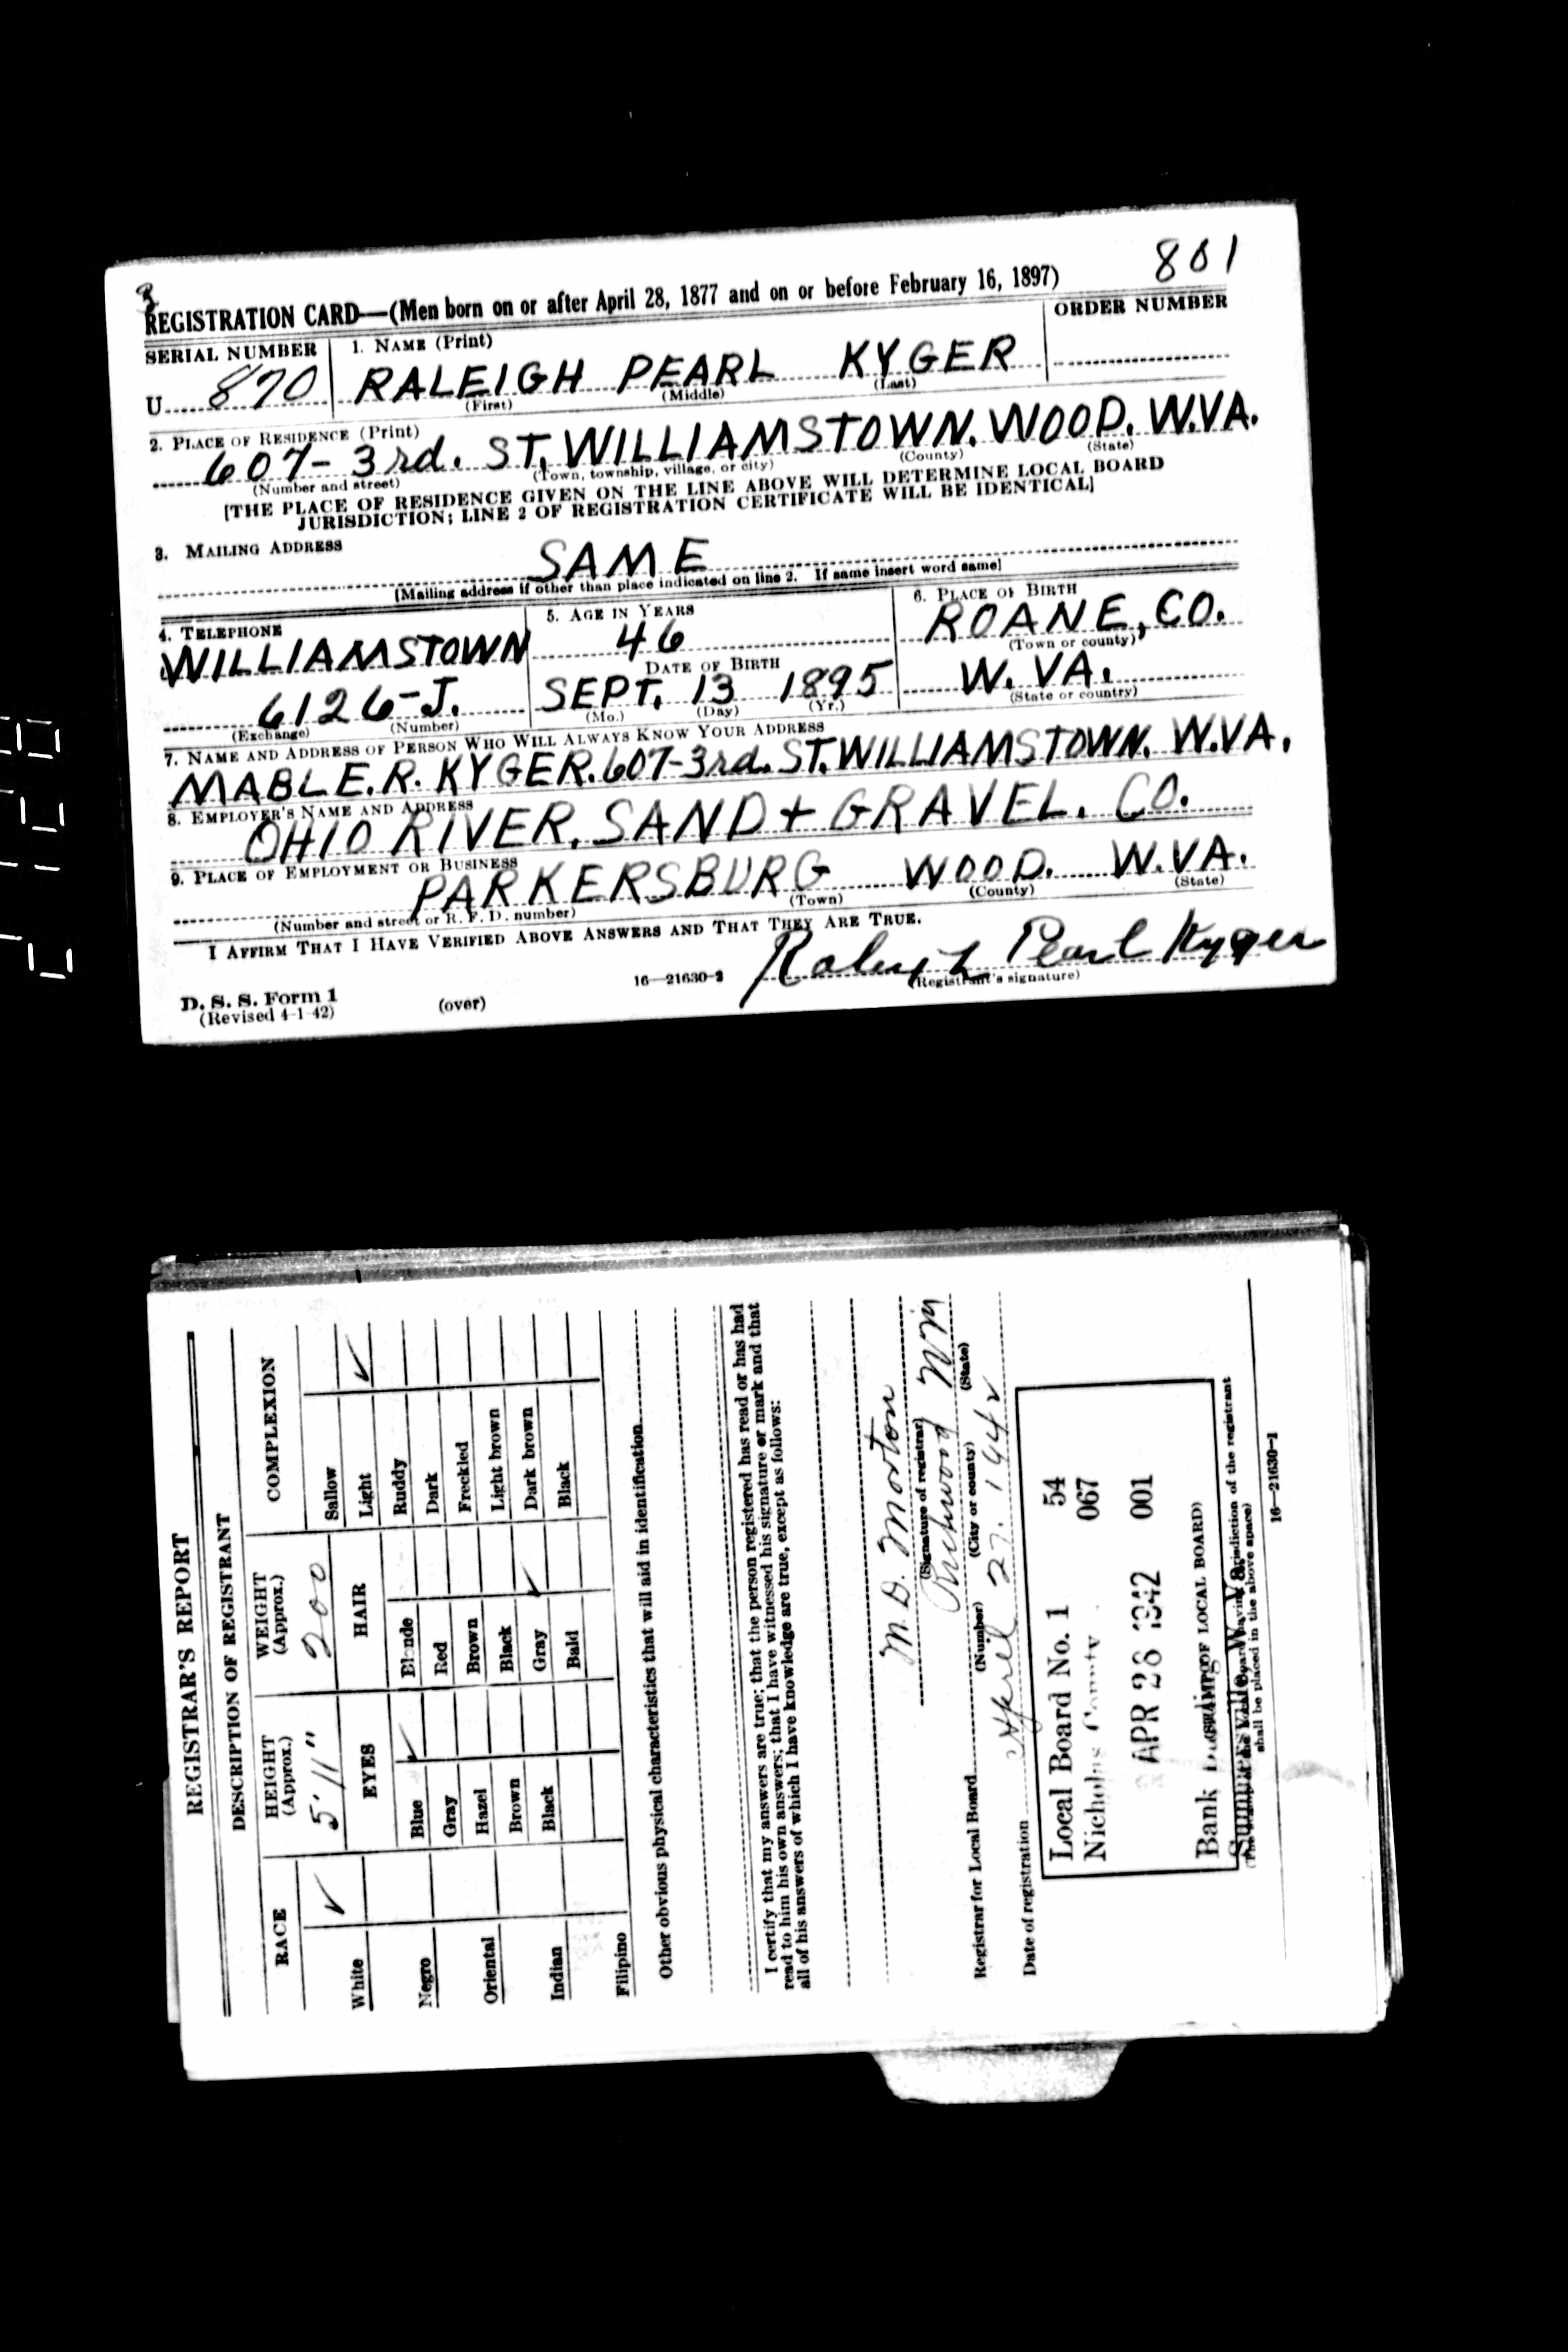 801
REGISTRATION CARD—(Men born on or after April 28, 1877 and on or before February 16, 1897)
SERIAL NUMBER 1. NAME (Print) ORDER NUMBER
U 870 RALEIGH PEARL KYGER
(First) (Middle) (Last)
2. PLACE OF RESIDENCE (Print)
607-3rd. ST. WILLIAMSTOWN. WOOD. W.VA.
(Number and street) (Town, township, village, or city) (County) (State)
[THE PLACE OF RESIDENCE GIVEN ON THE LINE ABOVE WILL DETERMINE LOCAL BOARD
JURISDICTION; LINE 2 OF REGISTRATION CERTIFICATE WILL BE IDENTICAL]
3. MAILING ADDRESS
SAME
[Mailing address if other than place indicated on line 2. If same insert word same]
4. TELEPHONE 5. AGE IN YEARS 6. PLACE OF BIRTH
WILLIAMSTOWN 46 ROANE, CO.
DATE OF BIRTH (Town or county)
6126-J. SEPT. 13 1895 W. VA.
(Exchange) (Number) (Mo.) (Day) (Yr.) (State or country)
7. NAME AND ADDRESS OF PERSON WHO WILL ALWAYS KNOW YOUR ADDRESS
MABLE.R. KYGER. 607-3rd. ST. WILLIAMSTOWN. W.VA.
8. EMPLOYER'S NAME AND ADDRESS
OHIO RIVER. SAND + GRAVEL. CO.
9. PLACE OF EMPLOYMENT OR BUSINESS
PARKERSBURG WOOD. W.VA.
(Number and street or R. F. D. number) (Town) (County) (State)
I AFFIRM THAT I HAVE VERIFIED ABOVE ANSWERS AND THAT THEY ARE TRUE.
Raleigh Pearl Kyger
(Registrant's signature)
D. S. S. Form 1
(Revised 4-1-42) (over) 16—21630-2
REGISTRAR'S REPORT
DESCRIPTION OF REGISTRANT
RACE HEIGHT (Approx.) WEIGHT (Approx.) COMPLEXION
5' 11" 200
White ✓ EYES HAIR Sallow
Light ✓
Negro Blue ✓ Blonde Ruddy
Gray Red Dark
Oriental Hazel Brown Freckled
Brown Black Light brown
Indian Black Gray ✓ Dark brown
Bald Black
Filipino
Other obvious physical characteristics that will aid in identification
I certify that my answers are true; that the person registered has read or has had
read to him his own answers; that I have witnessed his signature or mark and that
all of his answers of which I have knowledge are true, except as follows:
M. D. Morton
(Signature of registrar)
Registrar for Local Board Richwood
(Number) (City or county) (State)
Date of registration April 27. 1942
Local Board No. 1 54
Nicholas County 067
APR 28 1942 001
Bank
Summersville, W. Va.
(STAMP OF LOCAL BOARD)
shall be placed in the above space)
16—21630-1